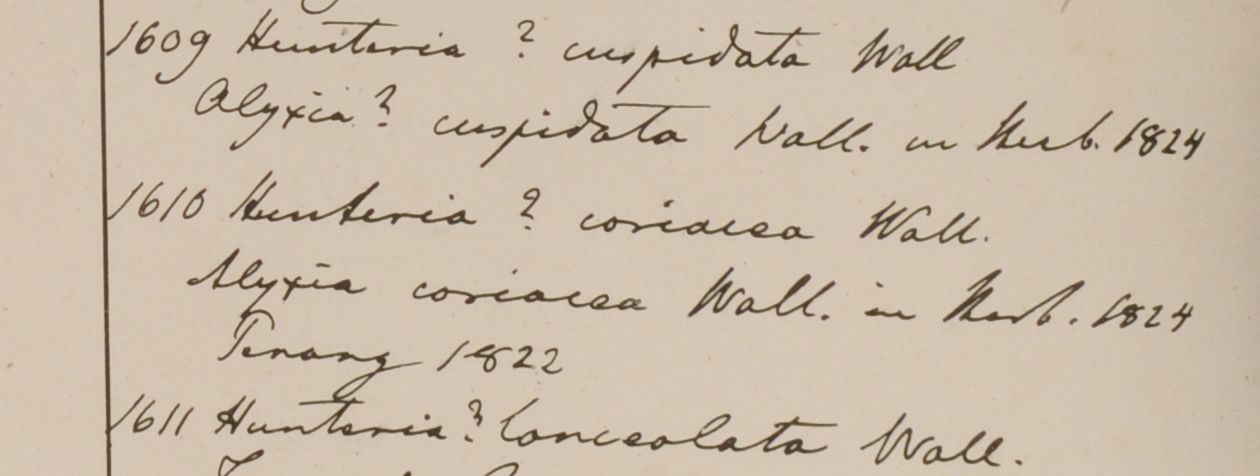 1609 Hunteria ? cuspidata Wall
Alyxia ? cuspidata Wall. in Herb. 1824
1610 Hunteria ? coriacea Wall.
Alyxia coriacea Wall. in Herb. 1824
Penang 1822
1611 Hunteria ? lanceolata Wall.